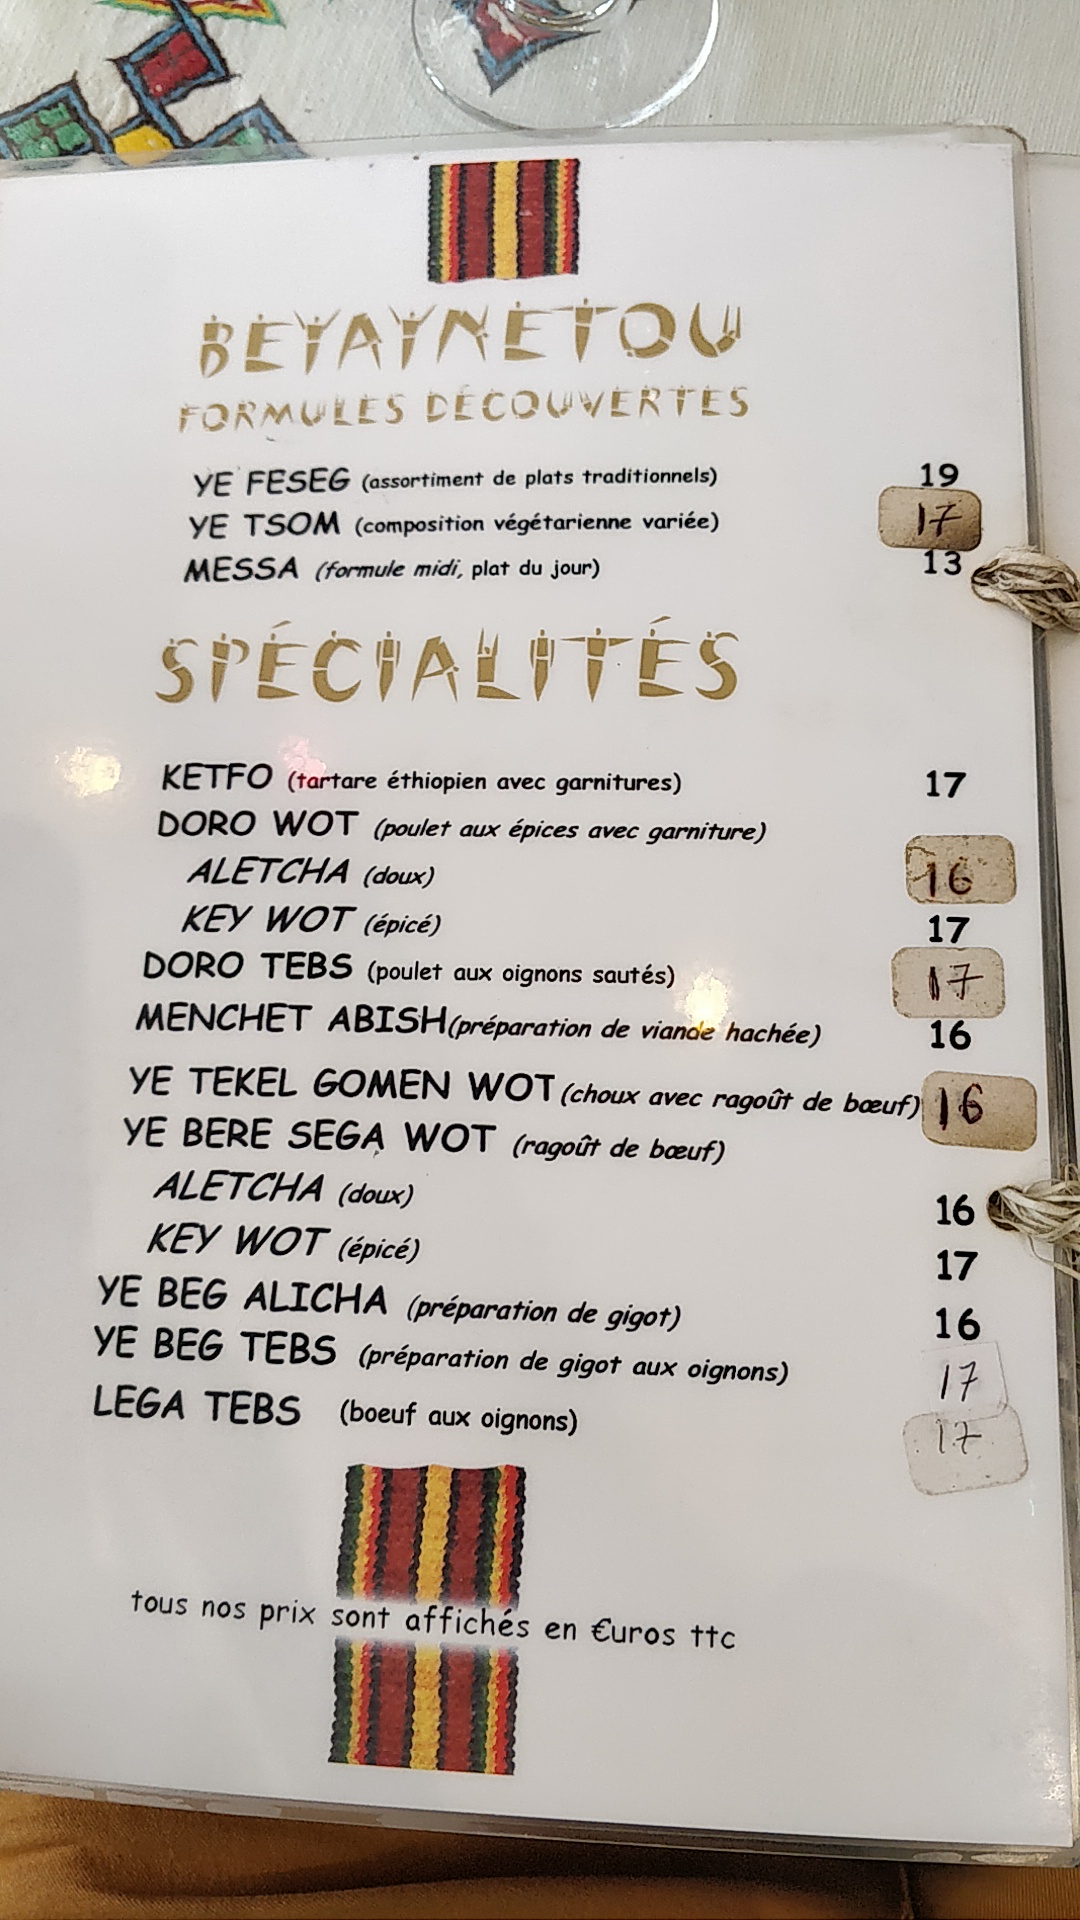 BEYAYNETOU
FORMULES DÉCOUVERTES
YE FESEG (assortiment de plats traditionnels) 19
YE TSOM (composition végétarienne variée) 17
MESSA (formule midi, plat du jour) 13
SPÉCIALITÉS
KETFO (tartare éthiopien avec garnitures) 17
DORO WOT (poulet aux épices avec garniture)
ALETCHA (doux) 16
KEY WOT (épicé) 17
DORO TEBS (poulet aux oignons sautés) 17
MENCHET ABISH(préparation de viande hachée) 16
YE TEKEL GOMEN WOT (choux avec ragoût de bœuf) 16
YE BERE SEGA WOT (ragoût de bœuf)
ALETCHA (doux) 16
KEY WOT (épicé) 17
YE BEG ALICHA (préparation de gigot) 16
YE BEG TEBS (préparation de gigot aux oignons) 17
LEGA TEBS (boeuf aux oignons) 17
tous nos prix sont affichés en €uros ttc